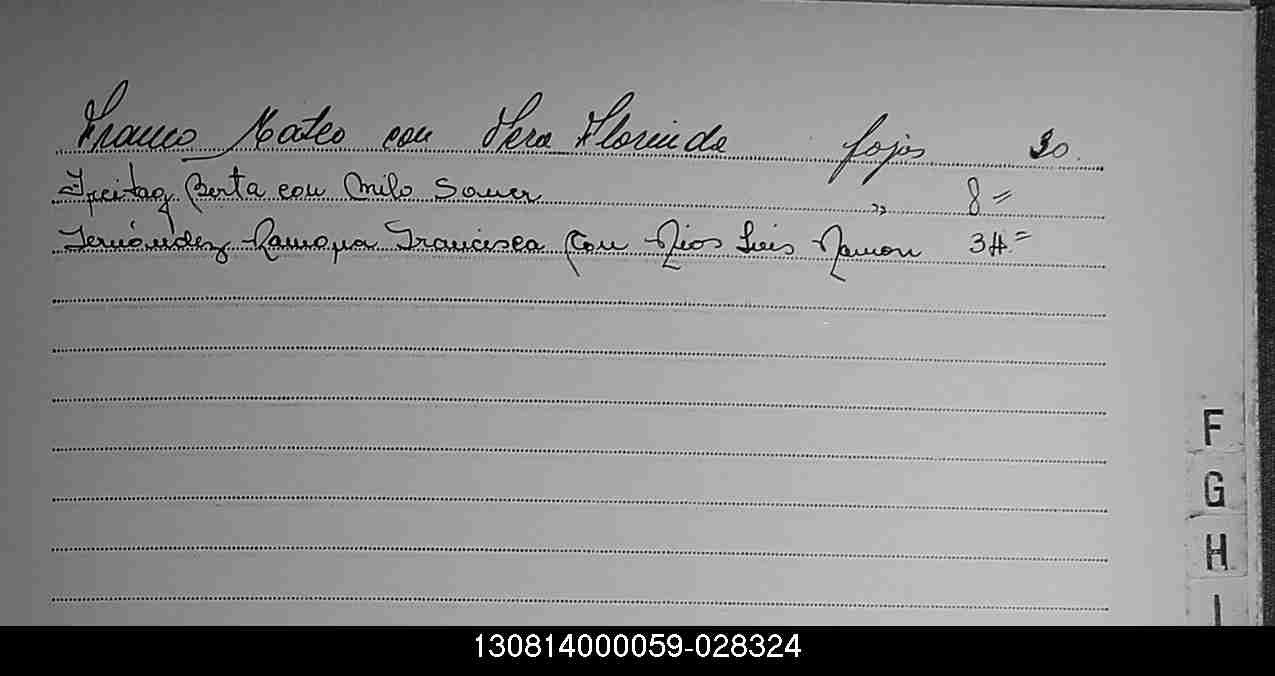 Franco Mateo con Vera Florinda fojas 30.
Freitag Berta con Milo Sauer " 8=
Fernández Ramona Francisca con Rios Luis Ramon 34=
F
G
H
I
130814000059-028324